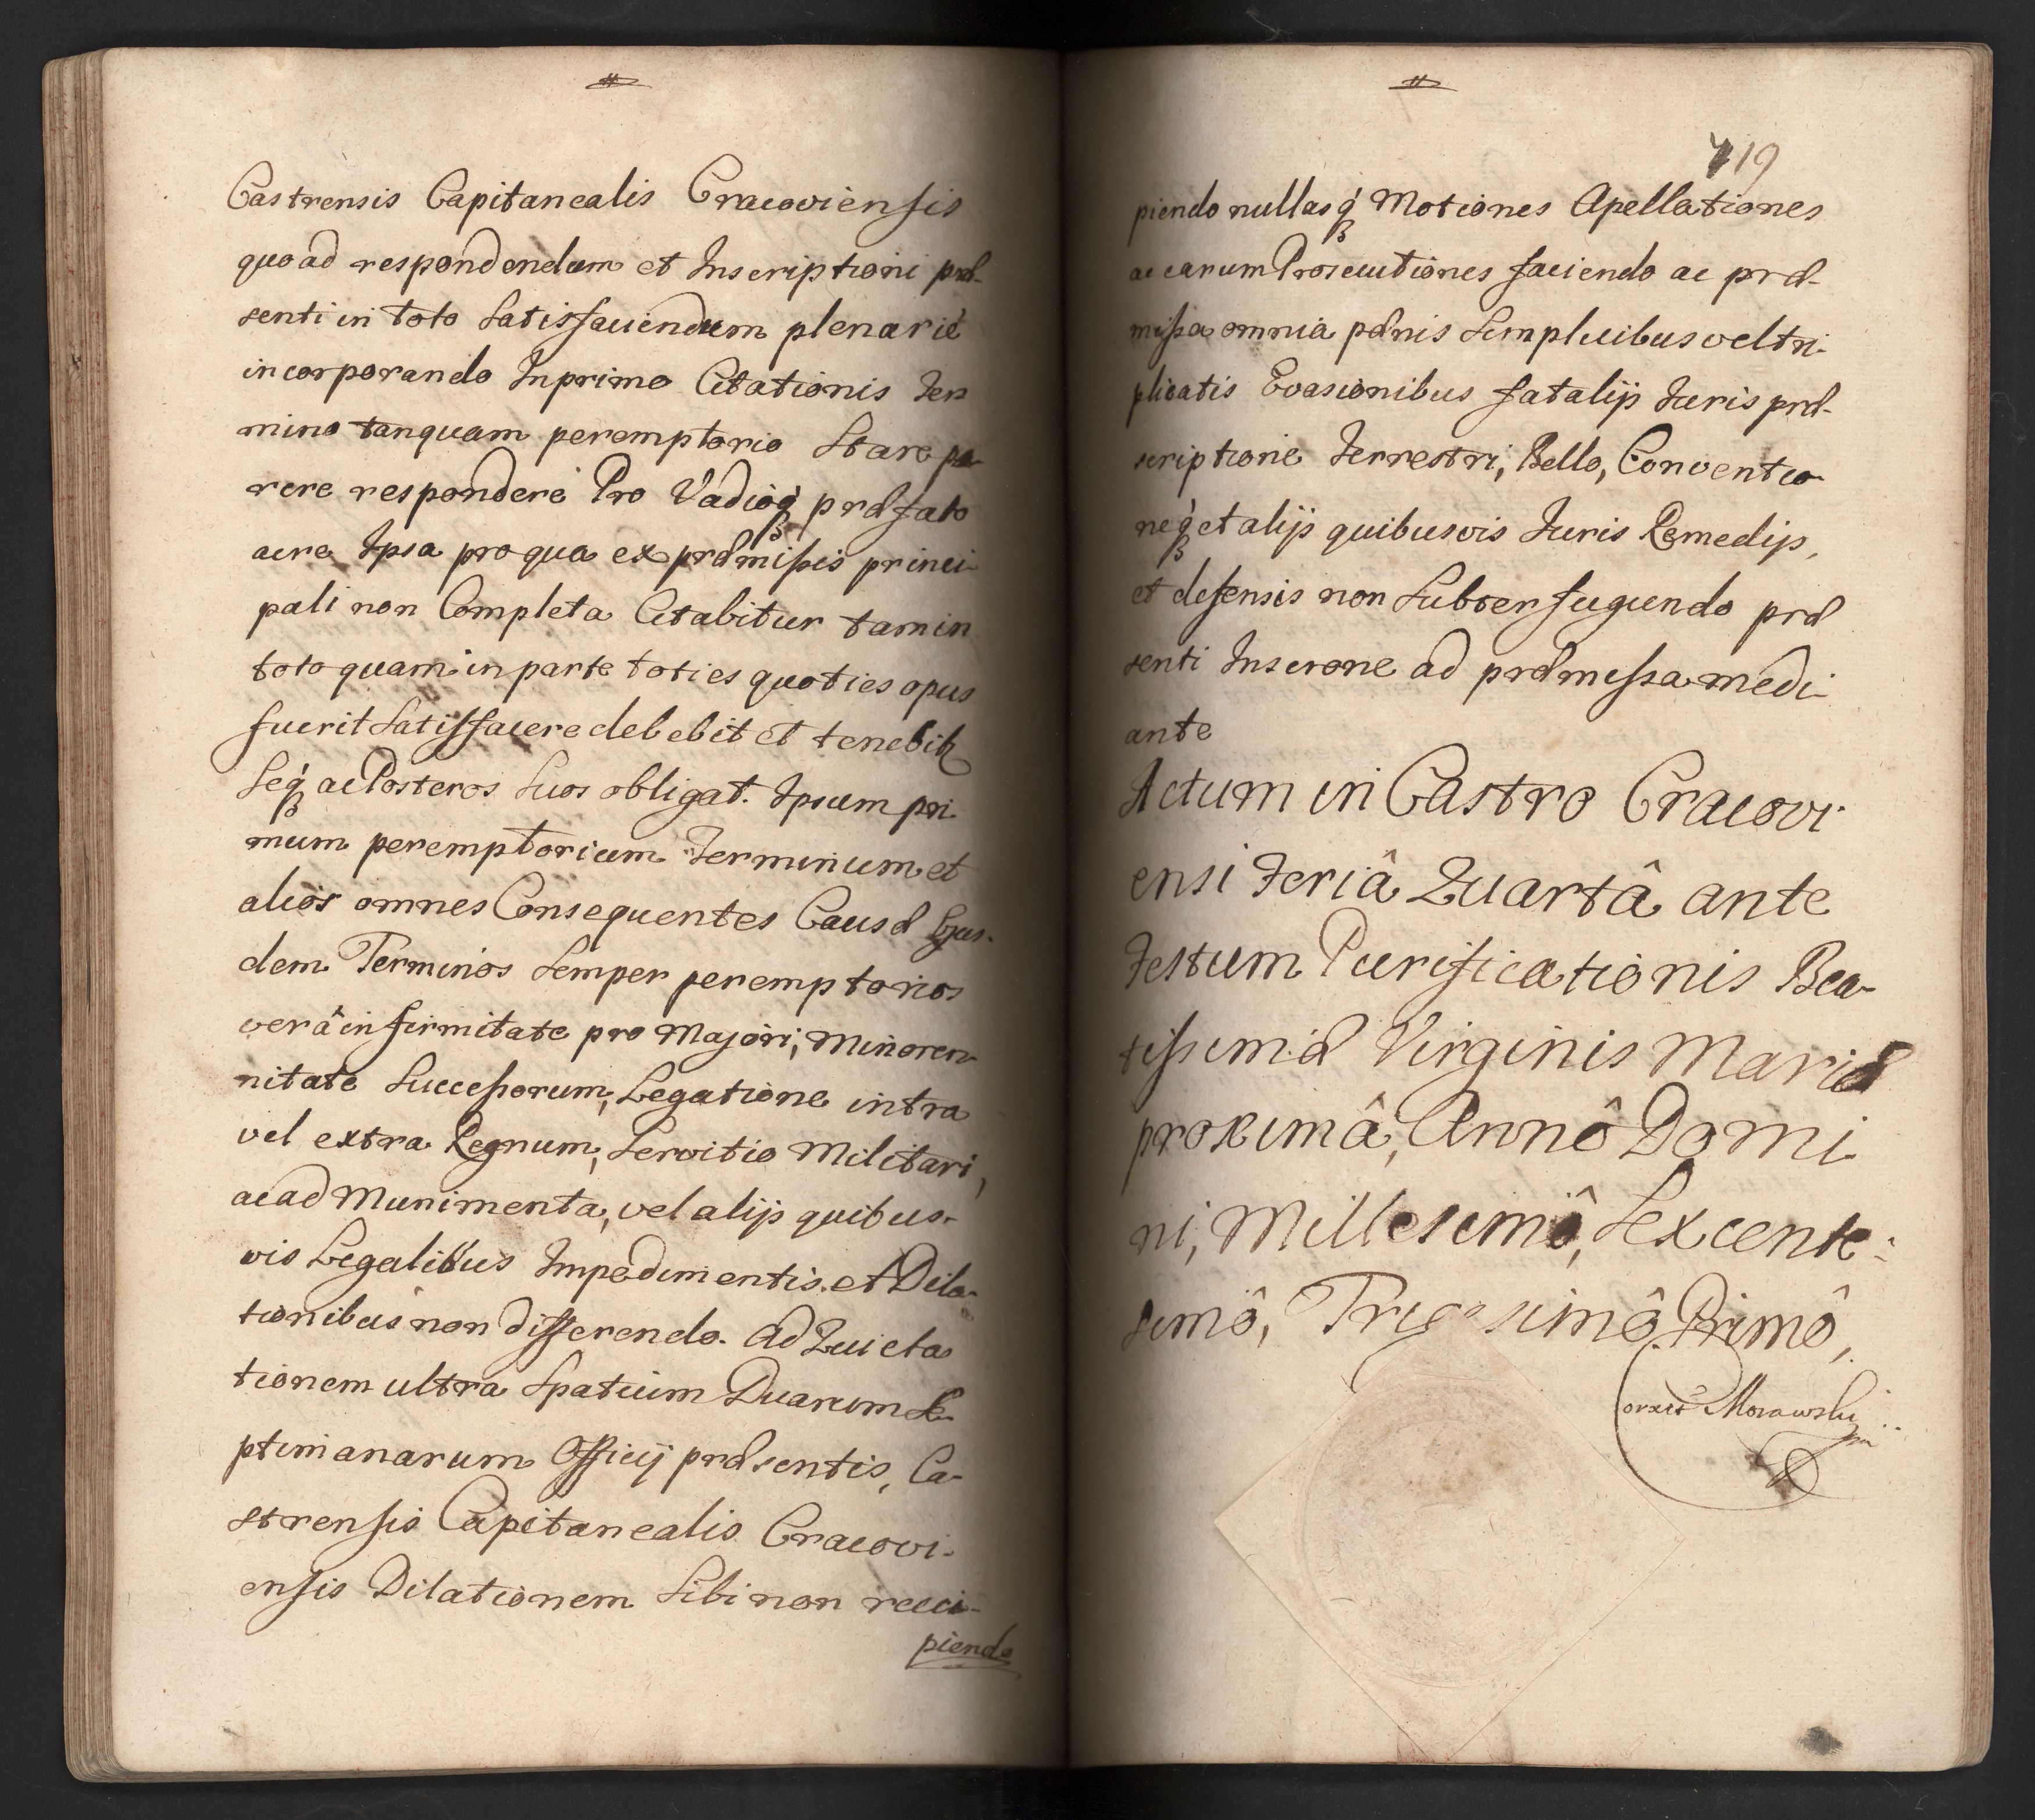 Castrensis Capitanealis Cracoviensis
quoad respondendum et Inscriptioni præ-
senti in toto Satisfaciendum plenarie
incorporando Inprimo Citationis Ter
mino tanquam peremptorio Stare pa-
rere respondere Pro Vadioq́ præfato
acre Ipsa pro qua ex præmissis princi-
pali non Completa Citabitur tam in
toto quam in parte toties quoties opus
fuerit Satisfacere debebit et tenebit
Seq́ ac Posteros Suos obligat. Ipsum pri
mum peremptorium Terminum et
alios omnes Consequentes Causæ Ejus-
dem Terminos Semper peremptorios
verâ infirmitate pro Majori, Minoren
nitate Successorum, Legatione intra
vel extra Regnum, Servitio Militari,
ac ad Munimenta, vel alijs quibus-
vis Legalibus Impedimentis. et Dila-
tionibus non differendo. Ad Quieta
tionem ultra Spatium Duarum Se-
ptimanarum Officij præsentis, Ca-
strensis Capitanealis Cracovi-
ensis Dilationem Sibi non reci-
piendo
719
piendo nullasq́ Motiones Apellationes
ac earum Prosecutiones faciendo ac præ-
missa omnia pænis Simplicibus vel tri-
plicatis Evasionibus fatalijs Juris præ-
scriptione Terrestri, Bello, Conventio-
neq́ et alijs quibusvis Juris Remedijs,
et defensis non Subterfugiendo præ
senti Inscrone ad præmissa medi-
ante
Actum in Castro Cracovi-
ensi Feriâ Quartâ ante
Festum Purificationis Bea-
tissimæ Virginis Mariæ
proximâ, Annô Domi-
ni, Millesimô, Sexcente-
simô, Trigesimô Primô,
Correxit Morawski